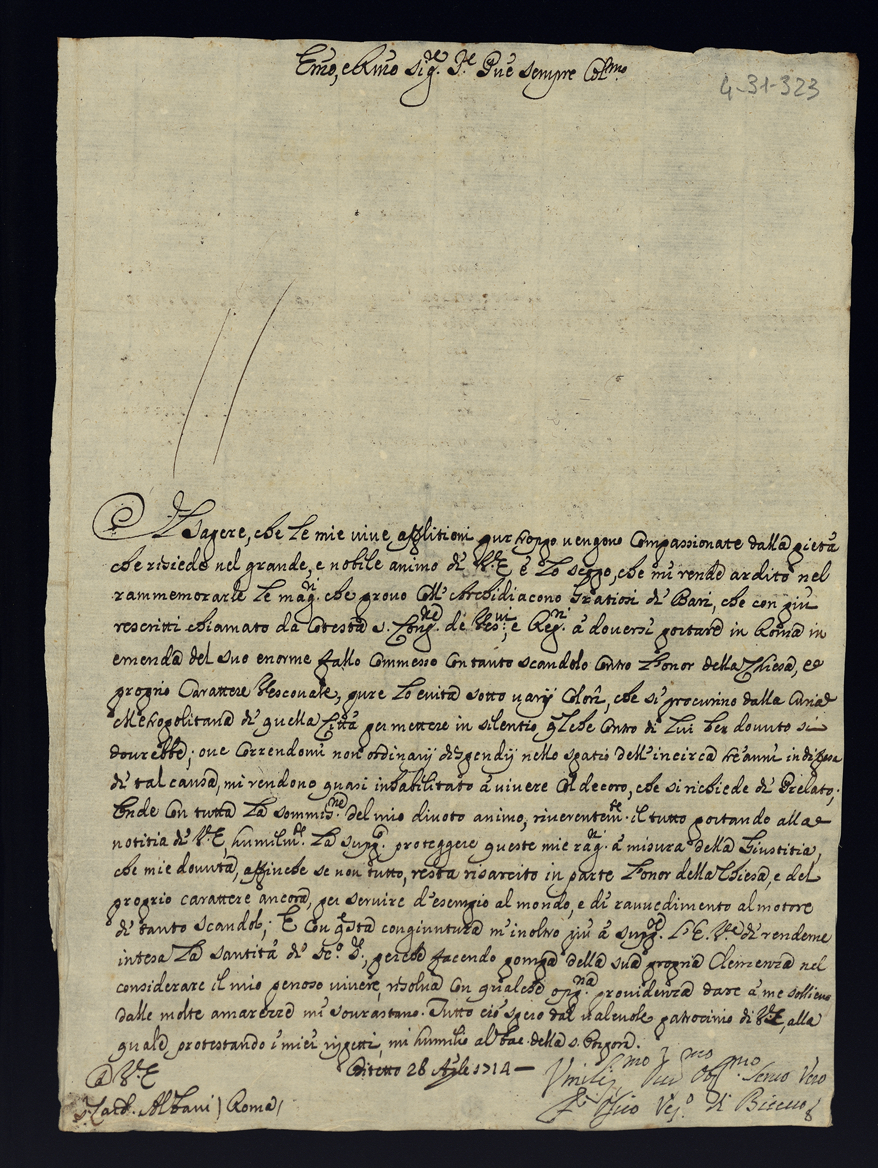 Emo, e Rmo Sig.re S.re Pne sempre Col.mo
4-31-323
Il sapere, che le mie vive afflitioni pur troppo vengono compassionate dalla pietà
che risiede nel grande, e nobile animo di V.E. è lo sprone, che mi rende ardito nel
rammemorarle le che provo coll'Archidiacono Gratiosi di Bari, che con più
rescritti chiamato da cotesta S. Cong.ne de Ves.vi, e Reg.ri à doversi portare in Roma in
emenda del suo enorme fallo commesso con tanto scandolo contro l'onor della Chiesa, e
proprio carattere Vescovale, pure lo evita sotto varij colori, che si procurino dalla Curia
Metropolitana di quella Città per mettere in silentio q.lche contro di lui ben dovuto si
dovrebbe; ove correndomi non ordinarij dispendij nello spatio dell'incirca tre anni in difesa
di tal causa, mi rendono quasi inhabilitato à vivere col decoro, che si richiede di Prelato;
Onde con tutta la sommis.ne del mio divoto animo, riverentem.te il tutto portando alla
notitia di V.E. humilm.te la supp.co proteggere queste mie rag.ni à misura della Giustitia,
che mie dovuta, affinche se non tutto, resta risarcito in parte l'onor della Chiesa, e del
proprio carattere ancora, per servire d'esempio al mondo, e di ravvedimento al motore
di tanto scandolo; E con q.esta congiuntura m'inoltro più à supp.re l'E.V.ra di renderne
intesa la Santità di N.o S.re, perche facendo pompa della sua propria Clemenza nel
considerare il mio penoso vivere, risolva con qualche opp.na providenza dare à me sollievo
dalle molte amarezze mi sovrastano. Tutto ciò spero dal valevole patrocinio di V.E., alla
quale protestando i miei rispetti, mi humilio al bac. della S. Porpora.
D V.E.
Bitetto 28 Ap.le 1714
Umiliss.mo Dev.mo Obl.mo Servo Vero
S. Card. Albani) Roma)
Ves.o di